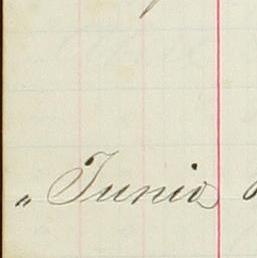 „ Junio